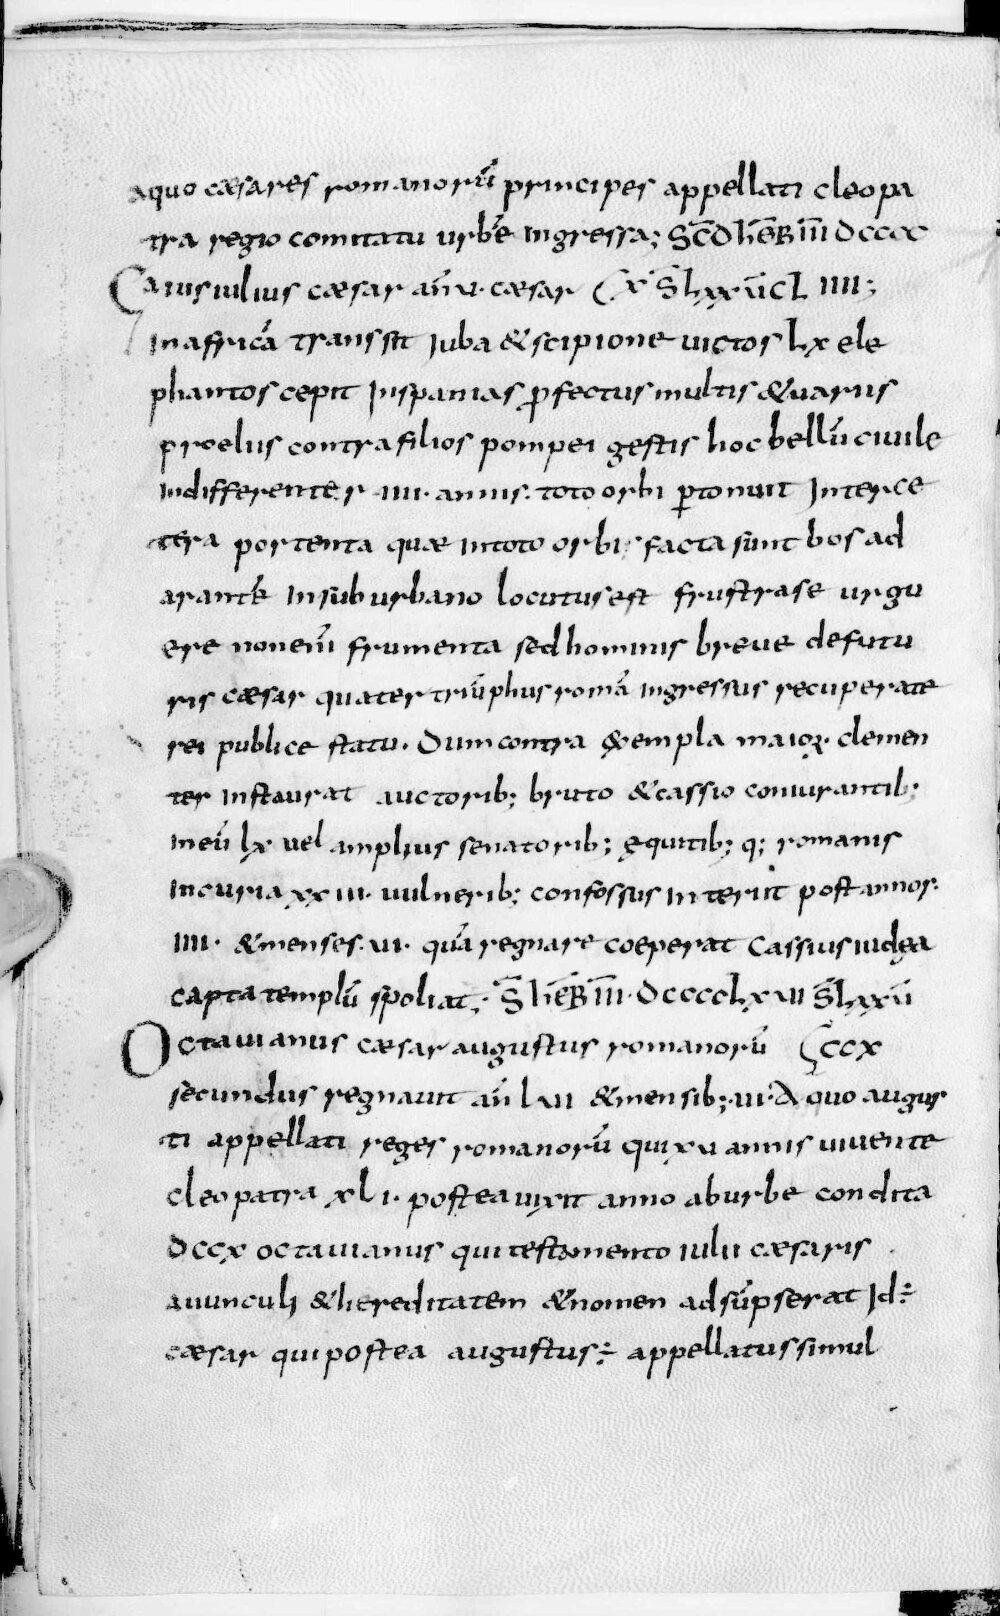 aquo cæsares romanorū principes appellati cleopa
tra regio comitatu urbē ingressa; Sc̄d h̄eƀ iii̅ dcccc
Caius iulius cæsar an̄ .vi. cæsar
in africā transsit iuba & scipione uictos lx ele
phantos cepit inspanias ꝓfectus multis & uariis
proeliis contra filios pompei gestis hoc bellū ciuile
indifferenter .iiii. annis. toto orbi ꝑtonuit Interce
tera portenta quæ intoto orbi facta sunt bos ad
arantē insuburbano locutus est frustra se urgu
ere non enī frumenta sed hominis breue defutu
ris cæsar quater triūphus romā ingressus recuperate
rei publice statu. Dum contra exempla maioꝝ. clemen
ter instaurat auctorib; bruto & cassio coniurantib;
in eū lx uel amplius senatorib; equitib; q; romanis
incuria xxiii. uulnerib; confossus interiit post annos.
iiii. & menses .vi. quā regnare coeperat Cassius iudęa
capta templū spoliat; S̄ h̄eƀ iii̅. dcccclxvii
Octauianus cæsar augustus romanorū
secundus regnauit an̄ lvii & mensib; .vi. A quo augus
ti appellati reges romanorū qui xv annis uiuente
cleopatra xli. postea uixit anno ab urbe condita
dccx octauianus qui testamento iulii cæsaris
auunculi & hereditatem & nomen adsūpserat Id:÷
cæsar qui postea augustus:÷ appellatus simul